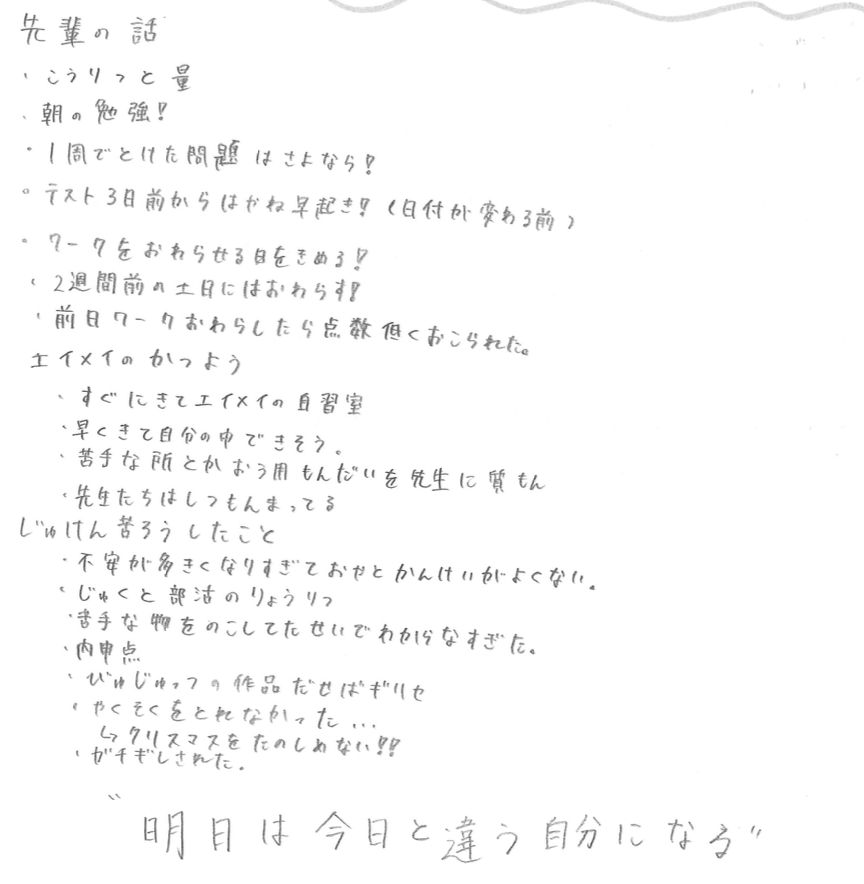 先輩の話
・こうりつと量
・朝の勉強!
・1周でとけた問題はさよなら!
・テスト3日前からははやね早起き!(日付が変わる前)
・ワークをおわらせる日をきめる!
・2週間前の土日にはおわらす!
・前日ワークおわらしたら点数低くおこられた。
エイメイのかつよう
・すぐにきてエイメイの自習室
・早くきて自分の中できそう。
・苦手な所とかおう用もんだいを先生に質もん
・先生たちはしつもんまってる
じゅけん苦ろうしたこと
・不安が多きくなりすぎておやとかんけいがよくない。
・じゅくと部活のりょうりつ
・苦手な物をのこしてたせいでわからなすぎた。
・内申点
・びじゅつの作品だせばギリセ
・やくそくをとれなかった...
↳クリスマスをたのしめない!!
・ガチギレされた。
"明日は今日と違う自分になる"